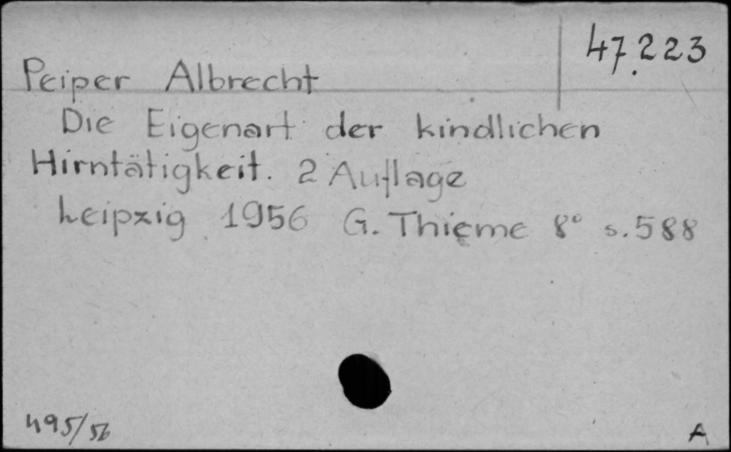 47.223
Peiper Albrecht
Die Eigenart der kindlichen
Hirntätigkeit. 2 Auflage
Leipzig 1956 G. Thieme 8° s. 588
495/56
A